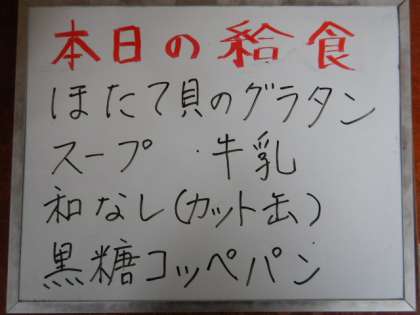 本日の給食
ほたて貝のグラタン
スープ ・牛乳
和なし(カット缶)
黒糖コッペパン